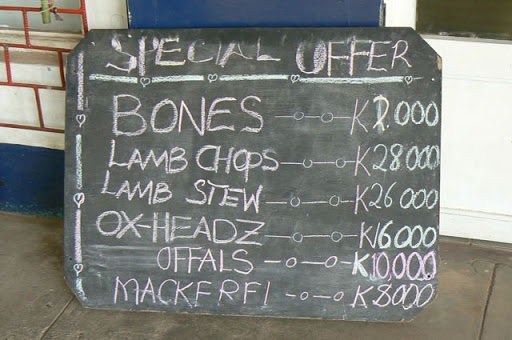 SPECIAL OFFER
BONES
LAMB CHOPS K28000
LAMB STEW K26000
OX-HEADZ K16000
OFFALS K10,000
MACKFRFI K8000